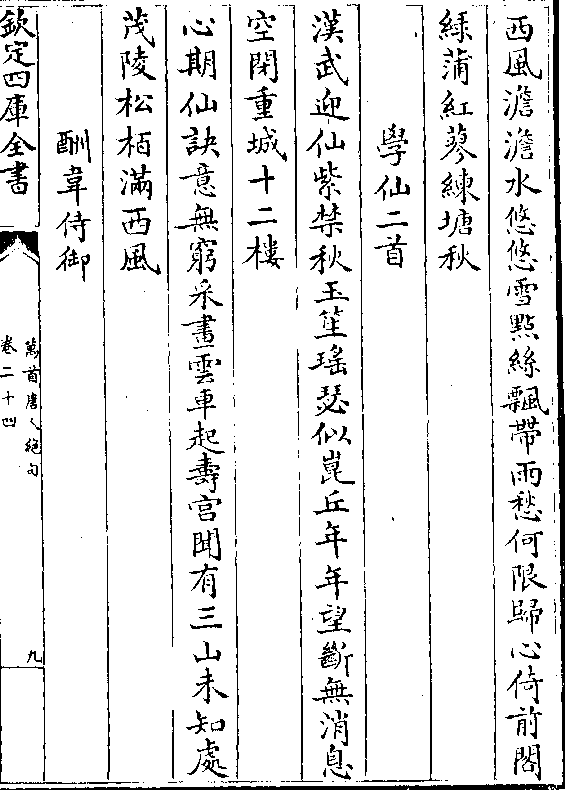 西風澹澹水悠悠雪點絲飄帶雨愁何限歸心倚前閣
緑蒲紅蓼練塘秋
學仙二首
漢武迎仙紫禁秋玉笙瑤瑟似崑丘年年望斷無消息
空閉重城十二樓
心期仙訣意無窮采畫雲車起壽宫聞有三山未知處
茂陵松栢滿西風
酬韋侍御
欽定四庫全書
萬首唐人絶句
卷二十四
九